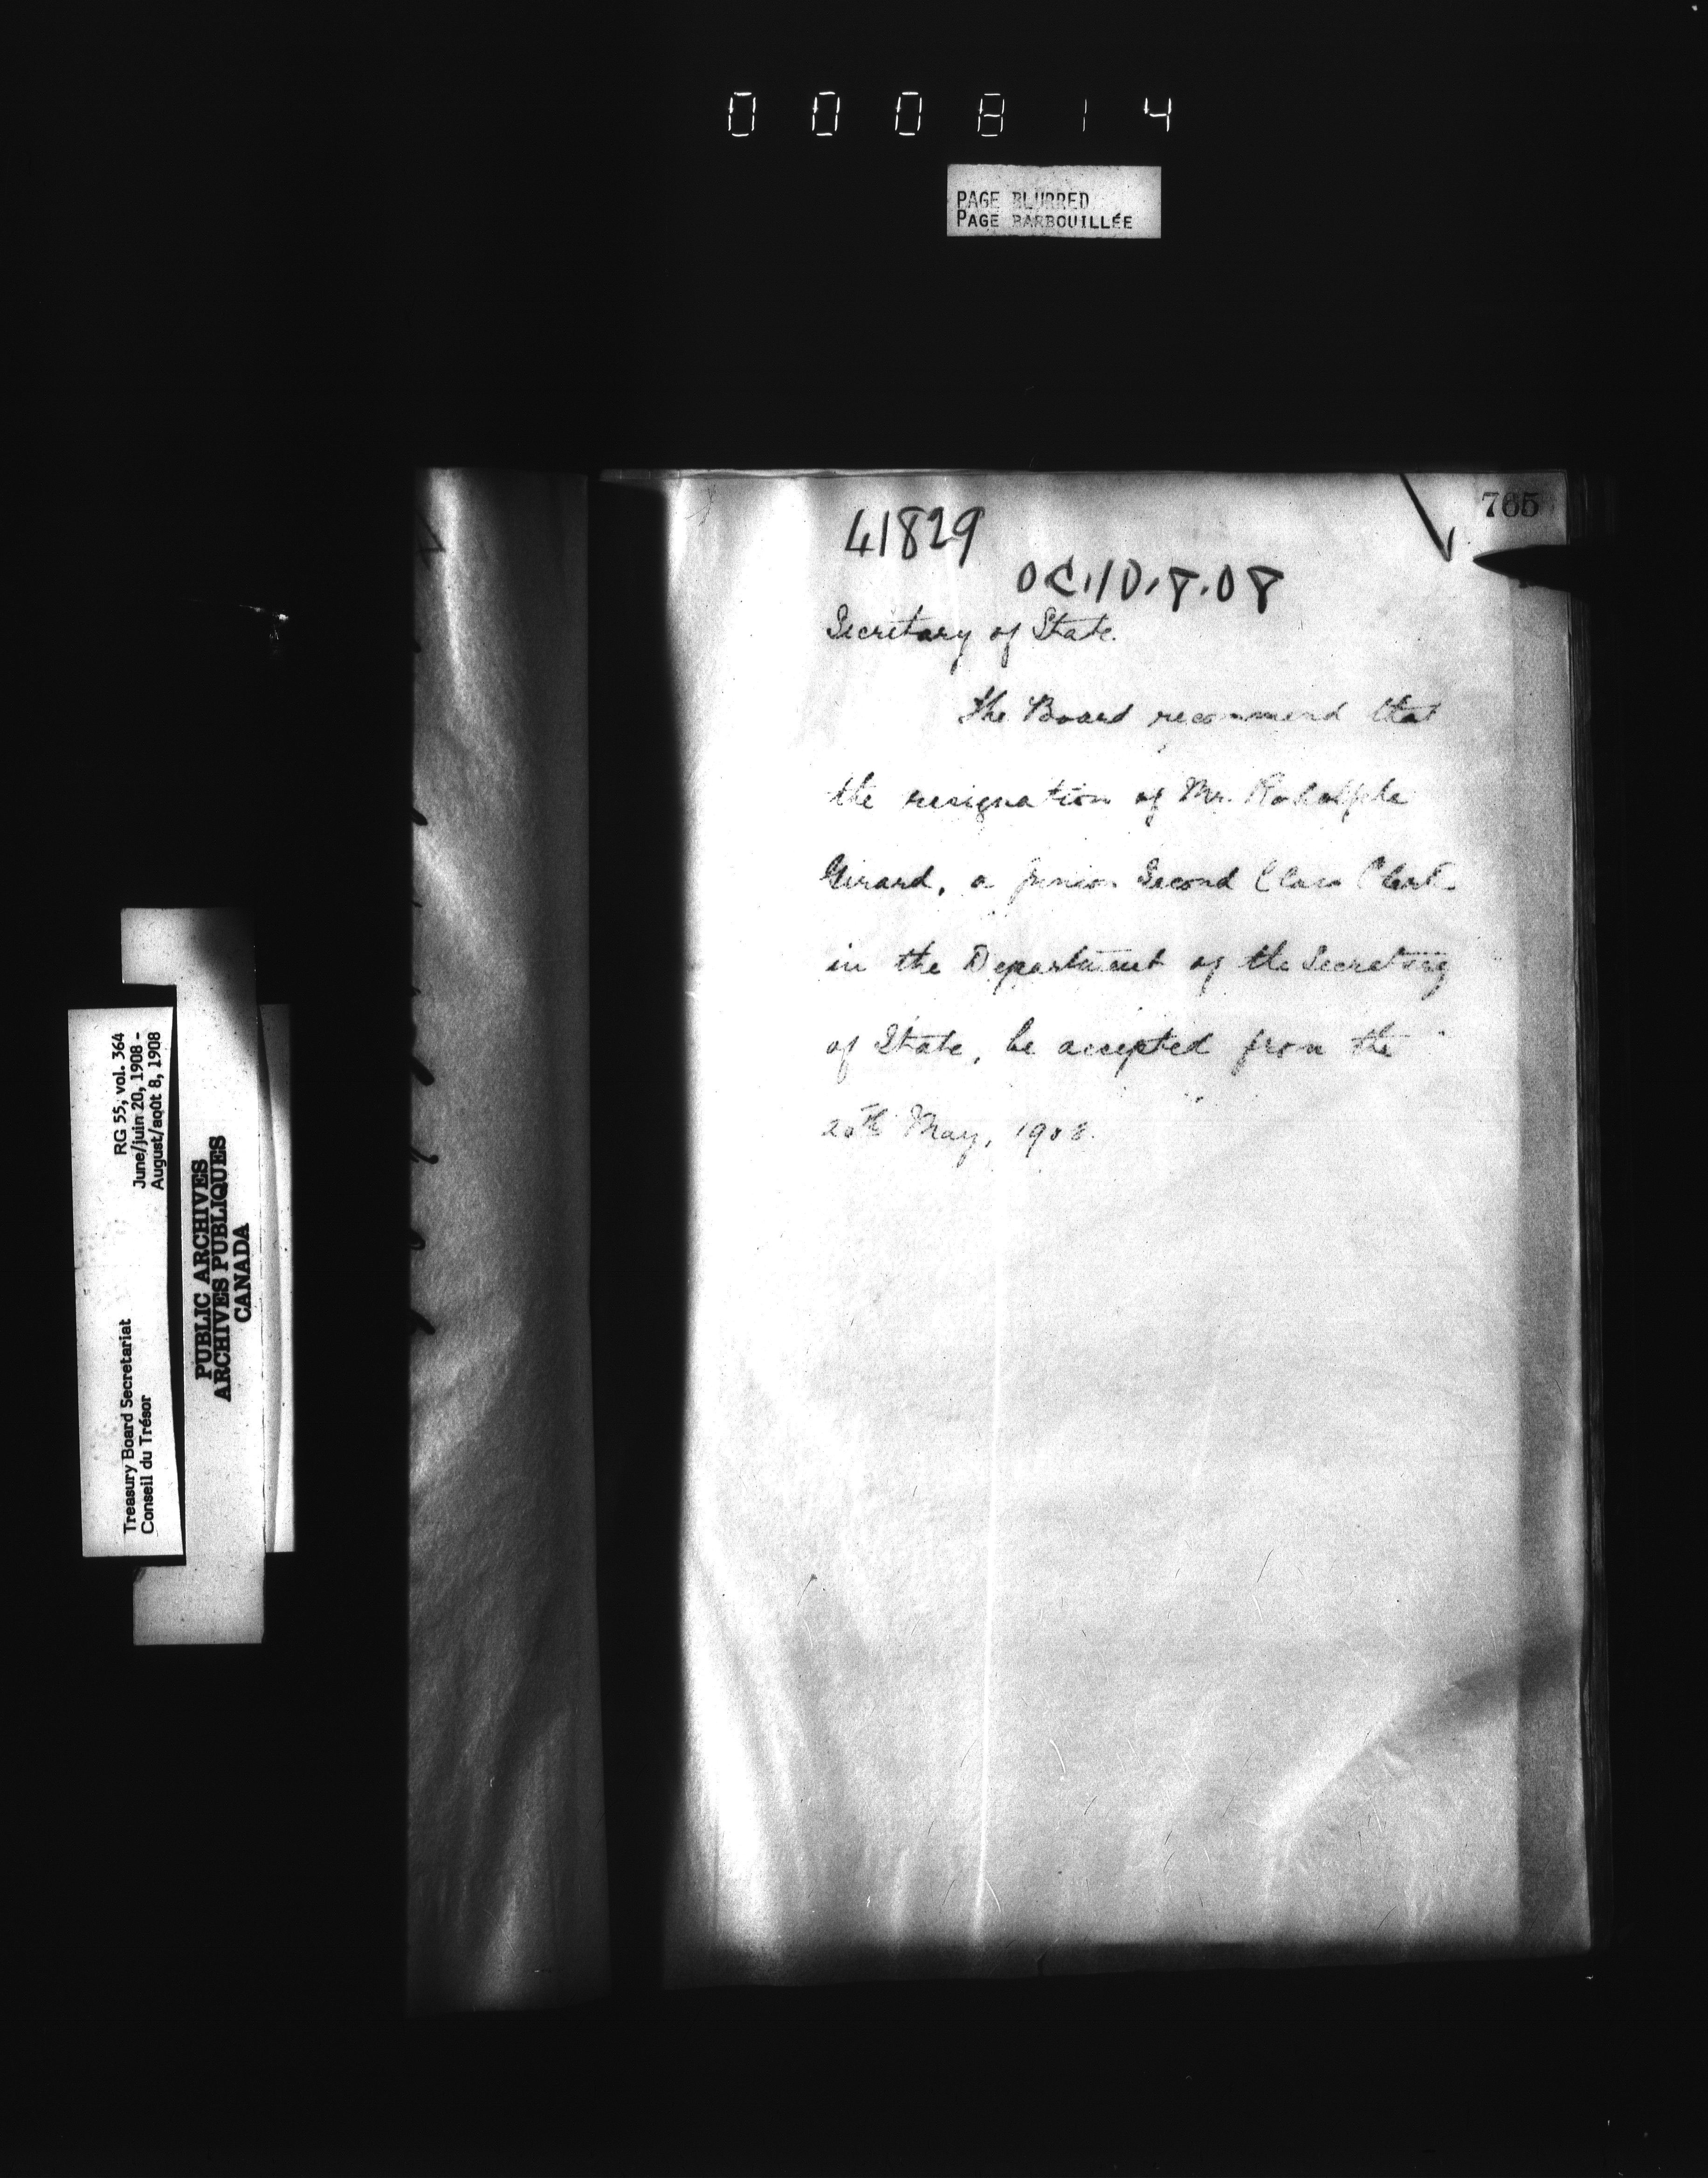 000814
PAGE BLURRED
PAGE BARBOUILLÉE
765
41829
OC.10.8.08
Secretary of State.
The Board recommend that
the resignation of Mr. Rodolphe
Girard, a Junior Second Class Clerk
in the Department of the Secretary
of State, be accepted from the
20th May, 1908.
RG 55, vol. 364
June/juin 20, 1908 -
August/août 8, 1908
Treasury Board Secretariat
Conseil du Trésor
PUBLIC ARCHIVES
ARCHIVES PUBLIQUES
CANADA